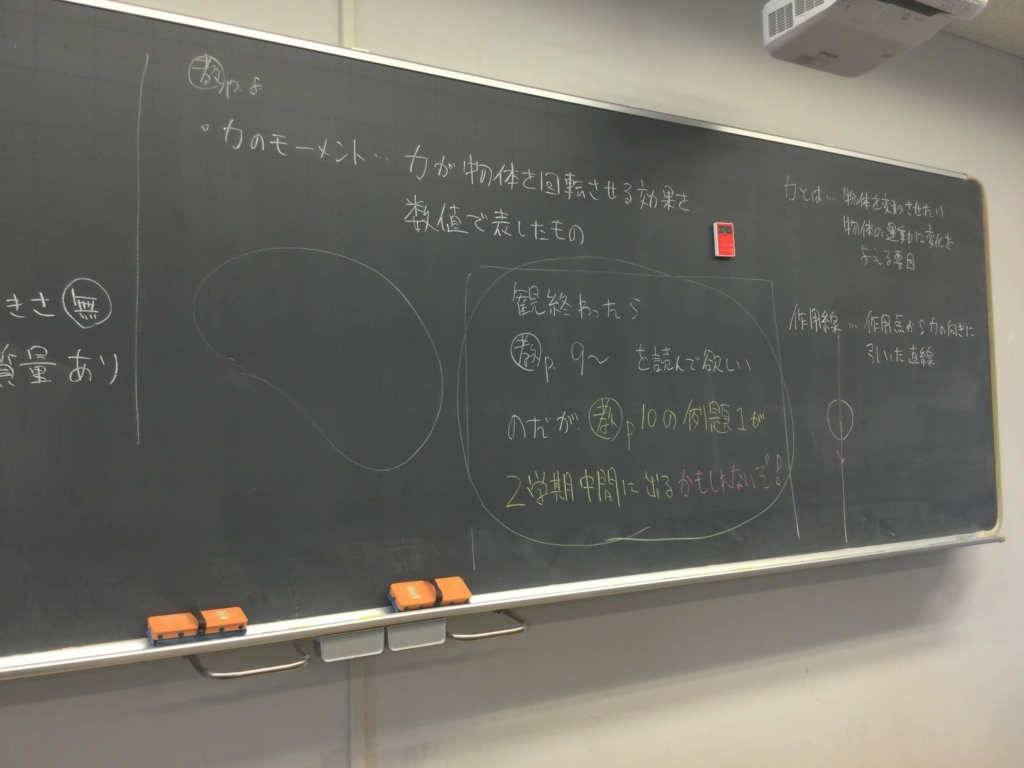 きさ 無
質量あり
教p.8
。力のモーメント… 力が物体を回転させる効果を
数値で表したもの
観終わったら
教p.9～ を読んで欲しい
のだが、教p10の例題1が
2学期中間に出るかもしれないぞ!
力とは… 物体を変形させたり
物体の運動に変化を
与える要因
作用線… 作用点から力の向きに
引いた直線